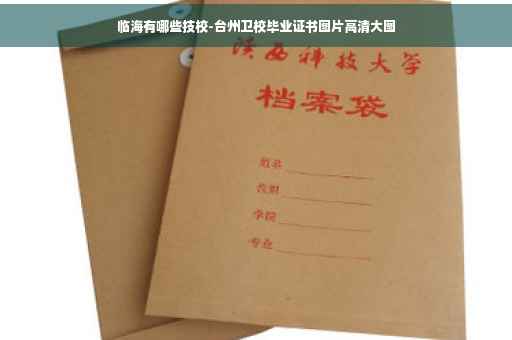 临海有哪些技校-台州卫校毕业证书图片高清大图
陕西科技大学
档案袋
姓名
学院
专业